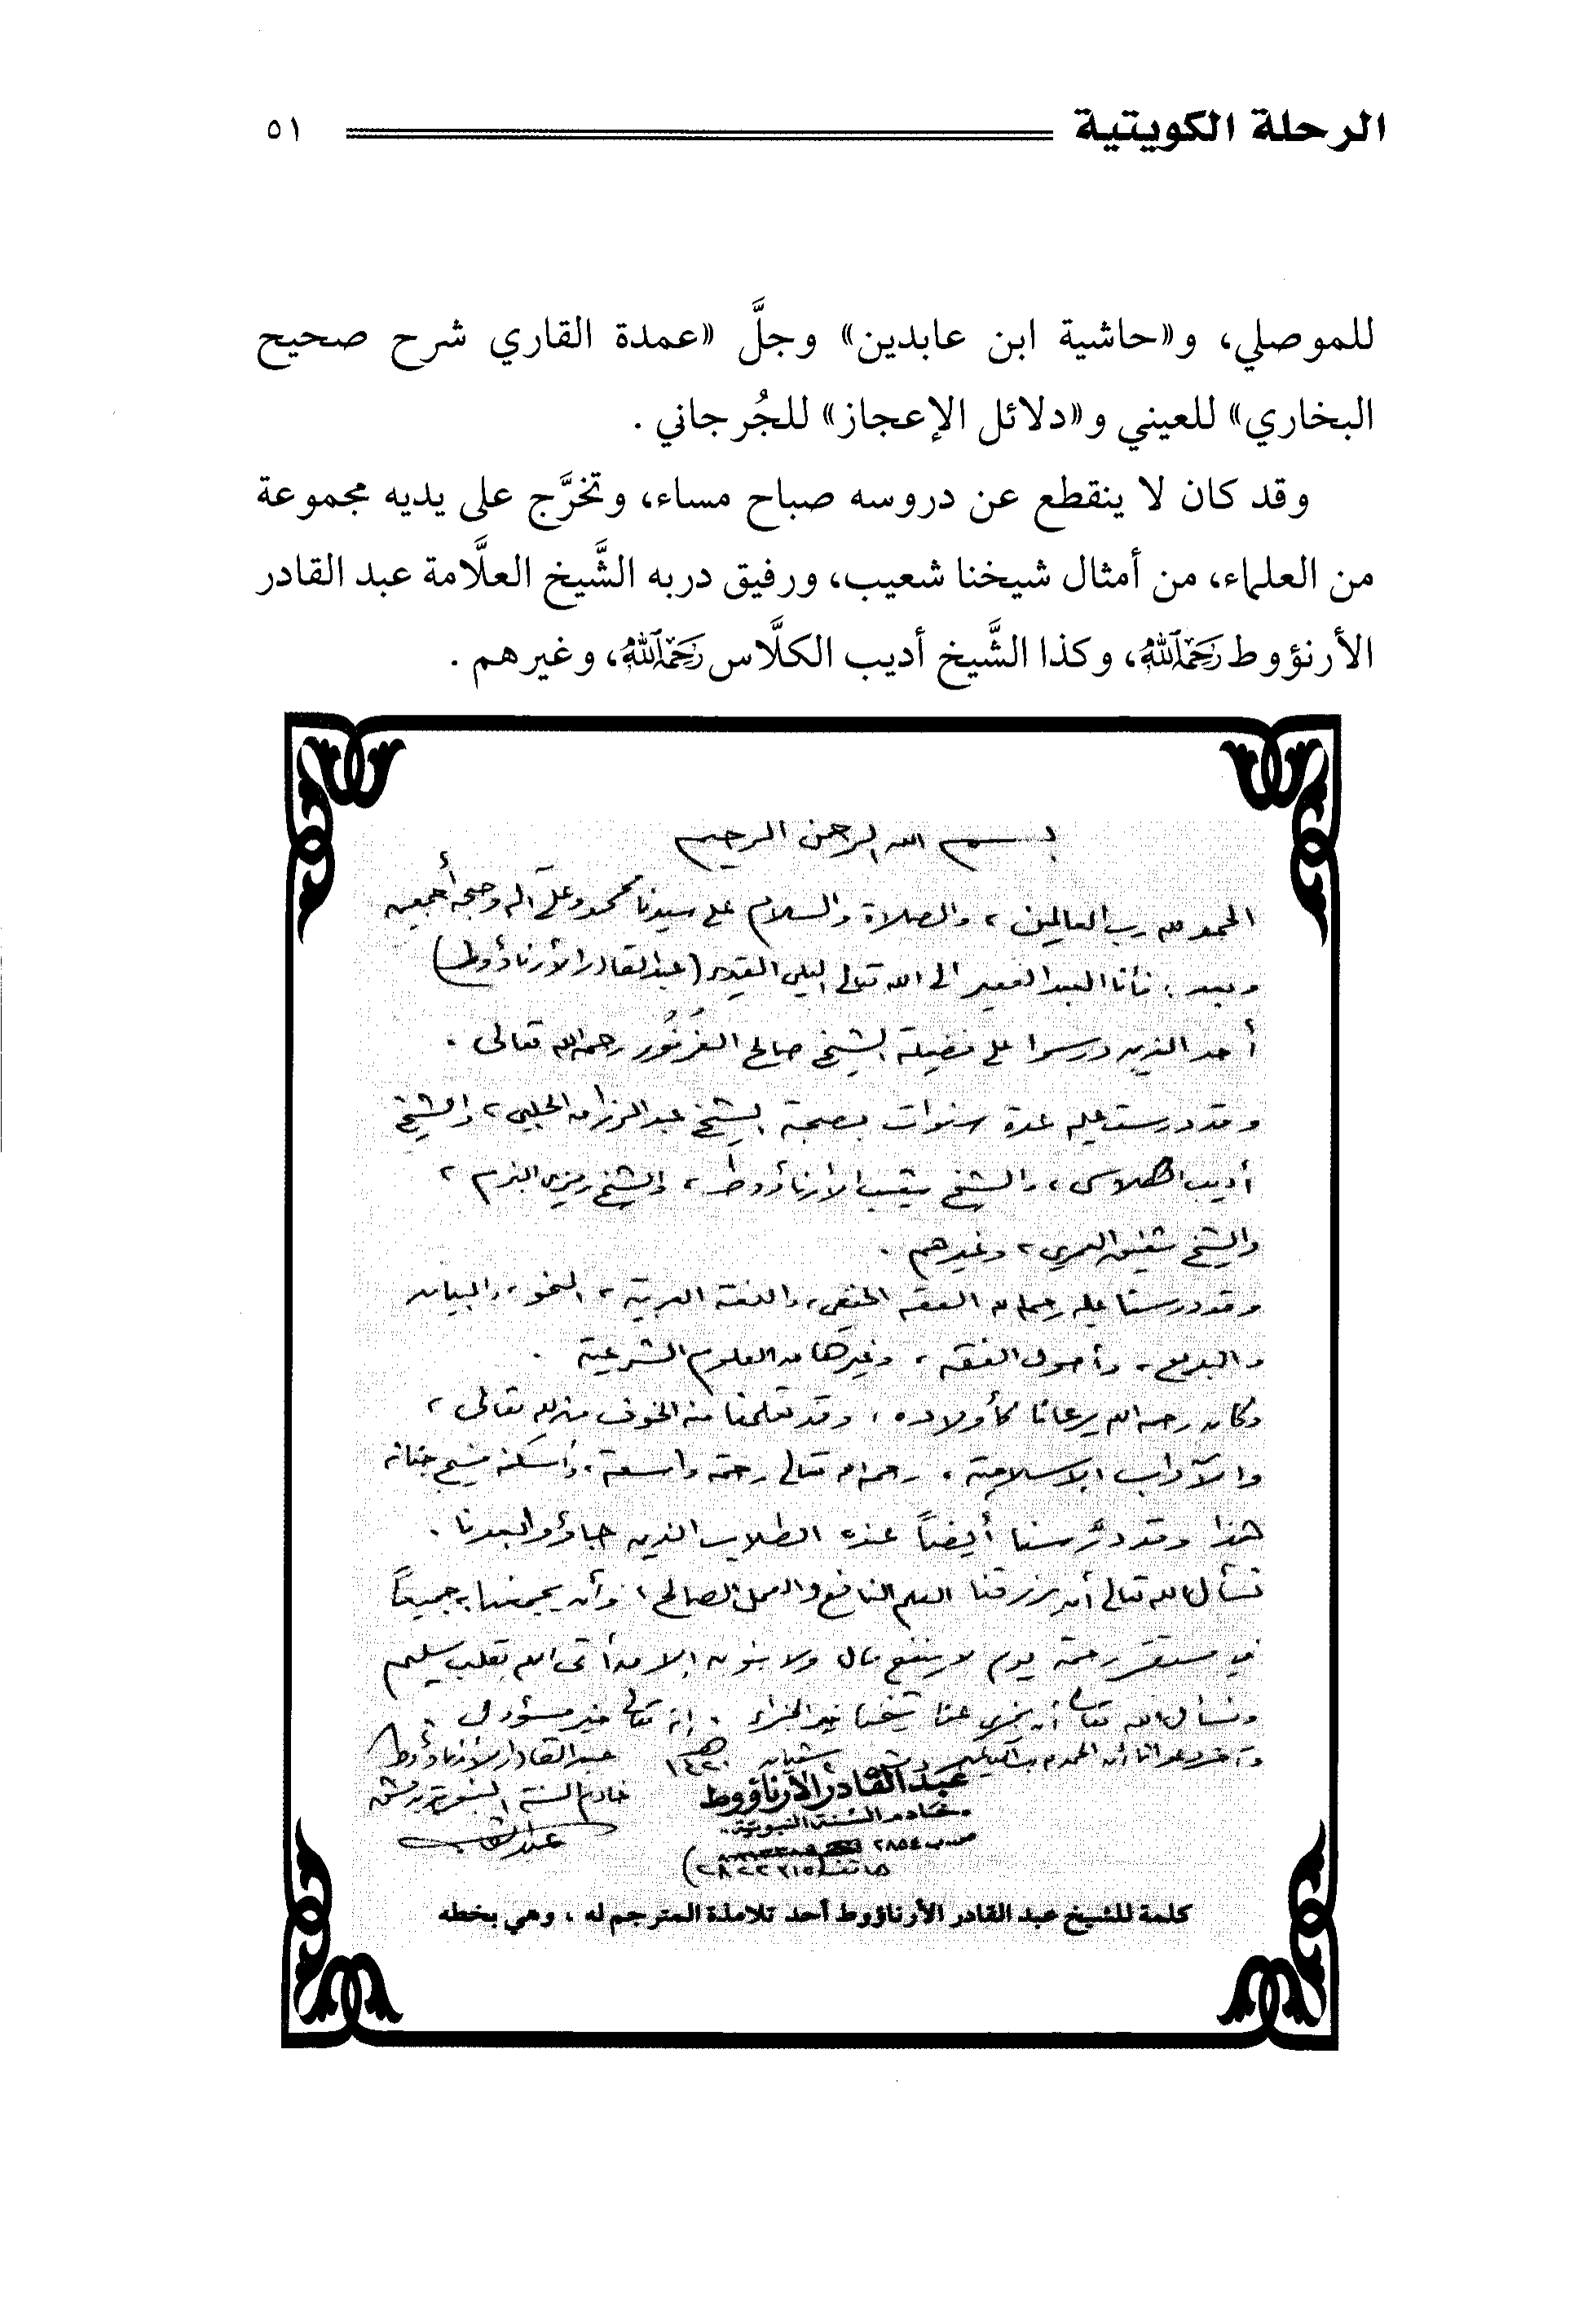 الرحلة الكويتية ٥١
للموصلي، و«حاشية ابن عابدين» وجلَّ «عمدة القاري شرح صحيح
البخاري» للعيني و«دلائل الإعجاز» للجُرجاني .
وقد كان لا ينقطع عن دروسه صباح مساء، وتخرَّج على يديه مجموعة
من العلماء، من أمثال شيخنا شعيب، ورفيق دربه الشَّيخ العلَّامة عبد القادر
الأرنؤوط رَحِمَهُ اللهُ، وكذا الشَّيخ أديب الكلَّاس رَحِمَهُ اللهُ، وغيرهم .
بسم الله الرحمن الرحيم
الحمد لله رب العالمين ، والصلاة والسلام على سيدنا محمد وعلى آله وصحبه أجمعين
وبعد : فأنا العبد الفقير الى الله تعالى العلي القدير (عبد القادر الأرناؤوط)
أحد الذين درسوا على فضيلة الشيخ صالح الفُرْفُور رحمه الله تعالى .
وقد درست عليه عدة سنوات بصحبة الشيخ عبد الرزاق الحلبي ، والشيخ
أديب الكلاس ، والشيخ شعيب الأرناؤوط ، والشيخ رمزي البزم ،
والشيخ شفيق العمري ، وغيرهم .
وقد درسنا عليه رحمه الله الفقه الحنفي ، واللغة العربية ، النحو ، والبيان
والبديع ، وأصول الفقه ، وغيرها من العلوم الشرعية .
وكان رحمه الله يرعانا كأولاده ، وقد تعلمنا منه الخوف من الله تعالى ،
والآداب الاسلامية ، رحمه الله تعالى رحمة واسعة ، وأسكنه فسيح جنانه
هذا وقد درَّسنا أيضاً عنده الطلاب الذين جاؤوا بعدنا .
نسأل الله تعالى أن يرزقنا العلم النافع والعمل الصالح ، وأن يجمعنا به جميعاً
في مستقر رحمته يوم لا ينفع مال ولا بنون إلا من أتى الله بقلب سليم
ونسأل الله تعالى أن يجزي عنا شيخنا خير الجزاء . إنه تعالى خير مسؤول .
وآخر دعوانا أن الحمد لله رب العالمين شعبان ١٤٢٠ هـ عبد القادر الأرناؤوط
عبد القادر الأرناؤوط خادم السنة النبوية بدمشق
خادم السنة النبوية
ص.ب ٢٨٥٤
هاتف
كلمة للشيخ عبد القادر الأرناؤوط أحد تلامذة المترجم له ، وهي بخطه